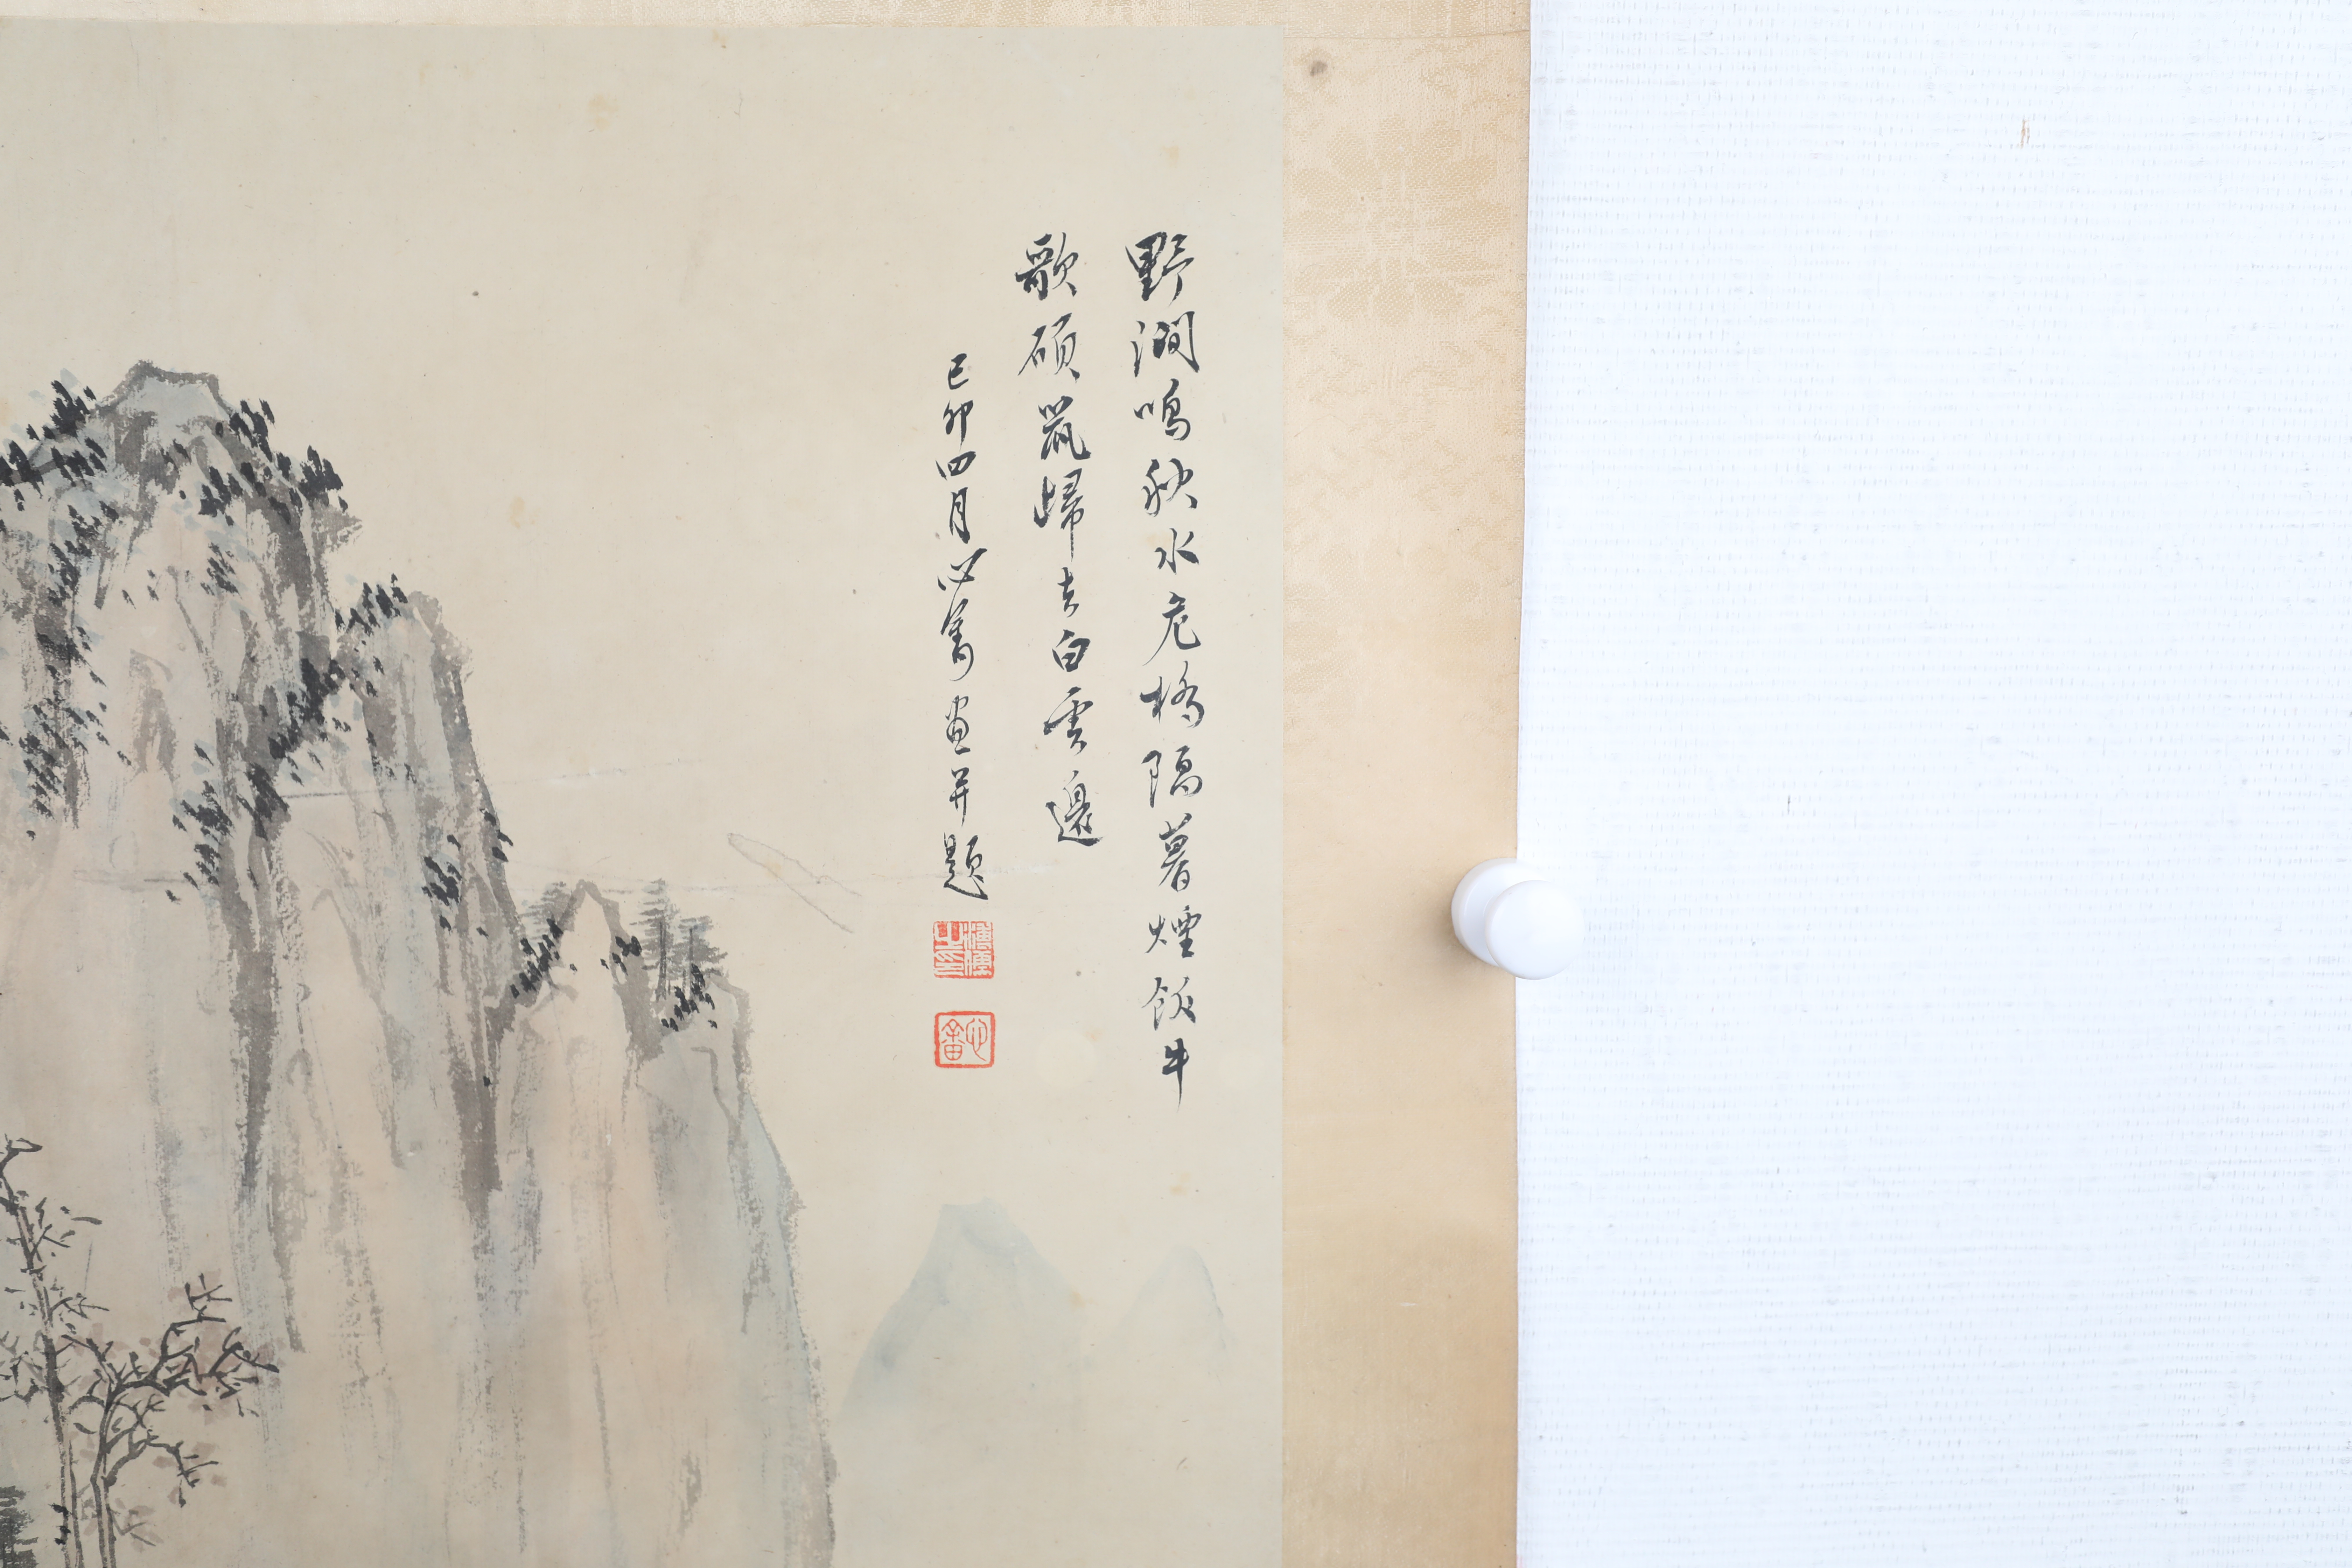 野澗鳴秋水危橋隔暮煙飯牛
歌碩鼠歸去白雲邊
己卯四月心畬畫并題
溥儒之印
心畬